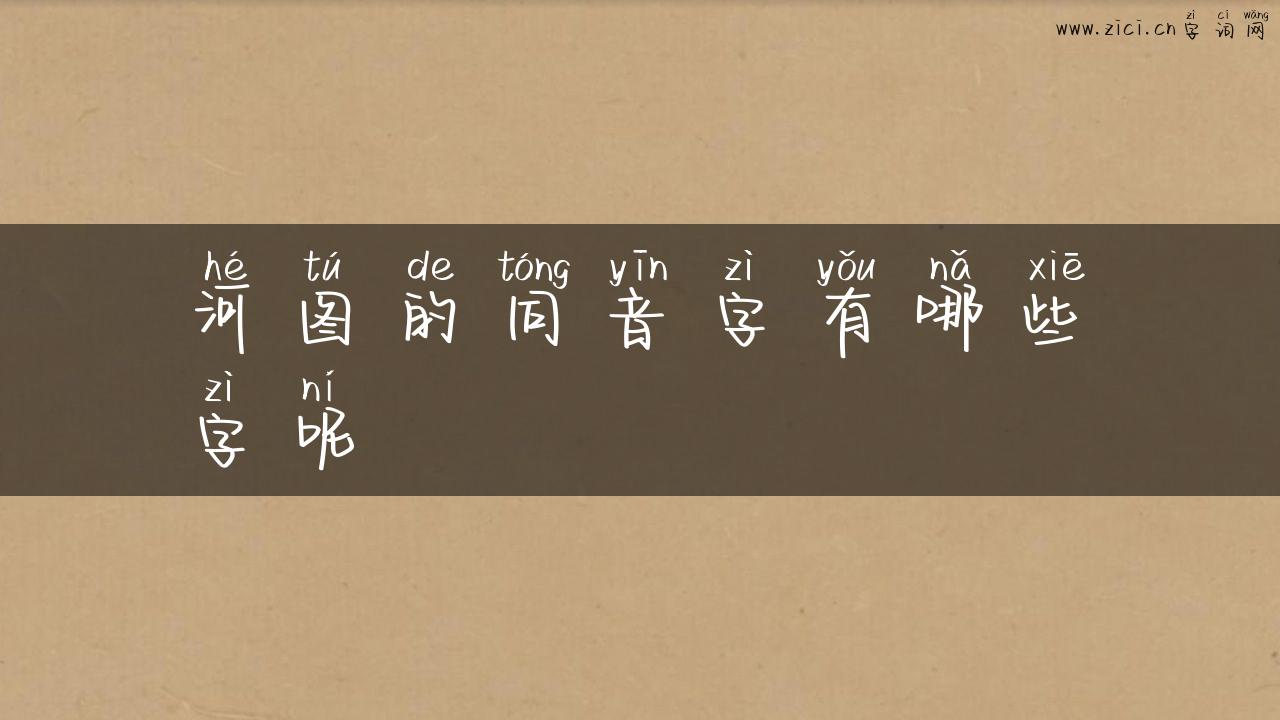 www.zici.cn 字词网
zì cí wǎng
hé tú de tóng yīn zì yǒu nǎ xiē
河图的同音字有哪些
zì ní
字呢